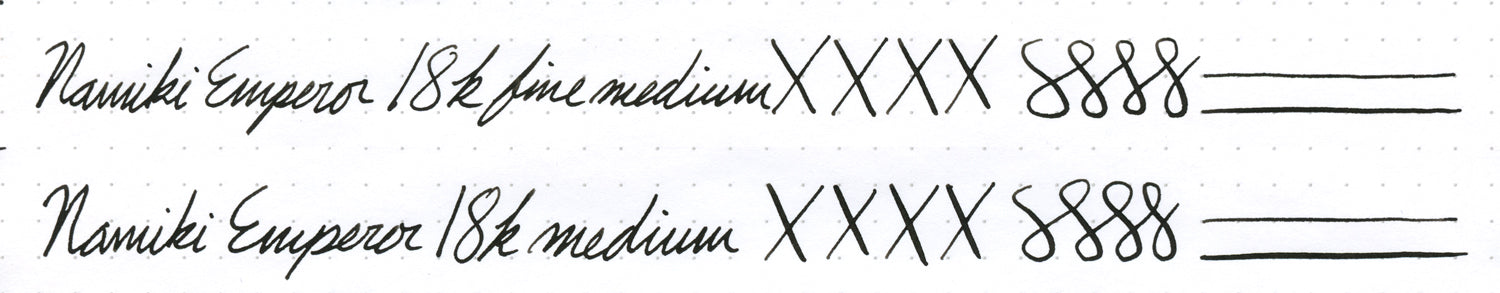 Namiki Emperor 18k fine medium X X X X 8888
Namiki Emperor 18k medium X X X X 8888